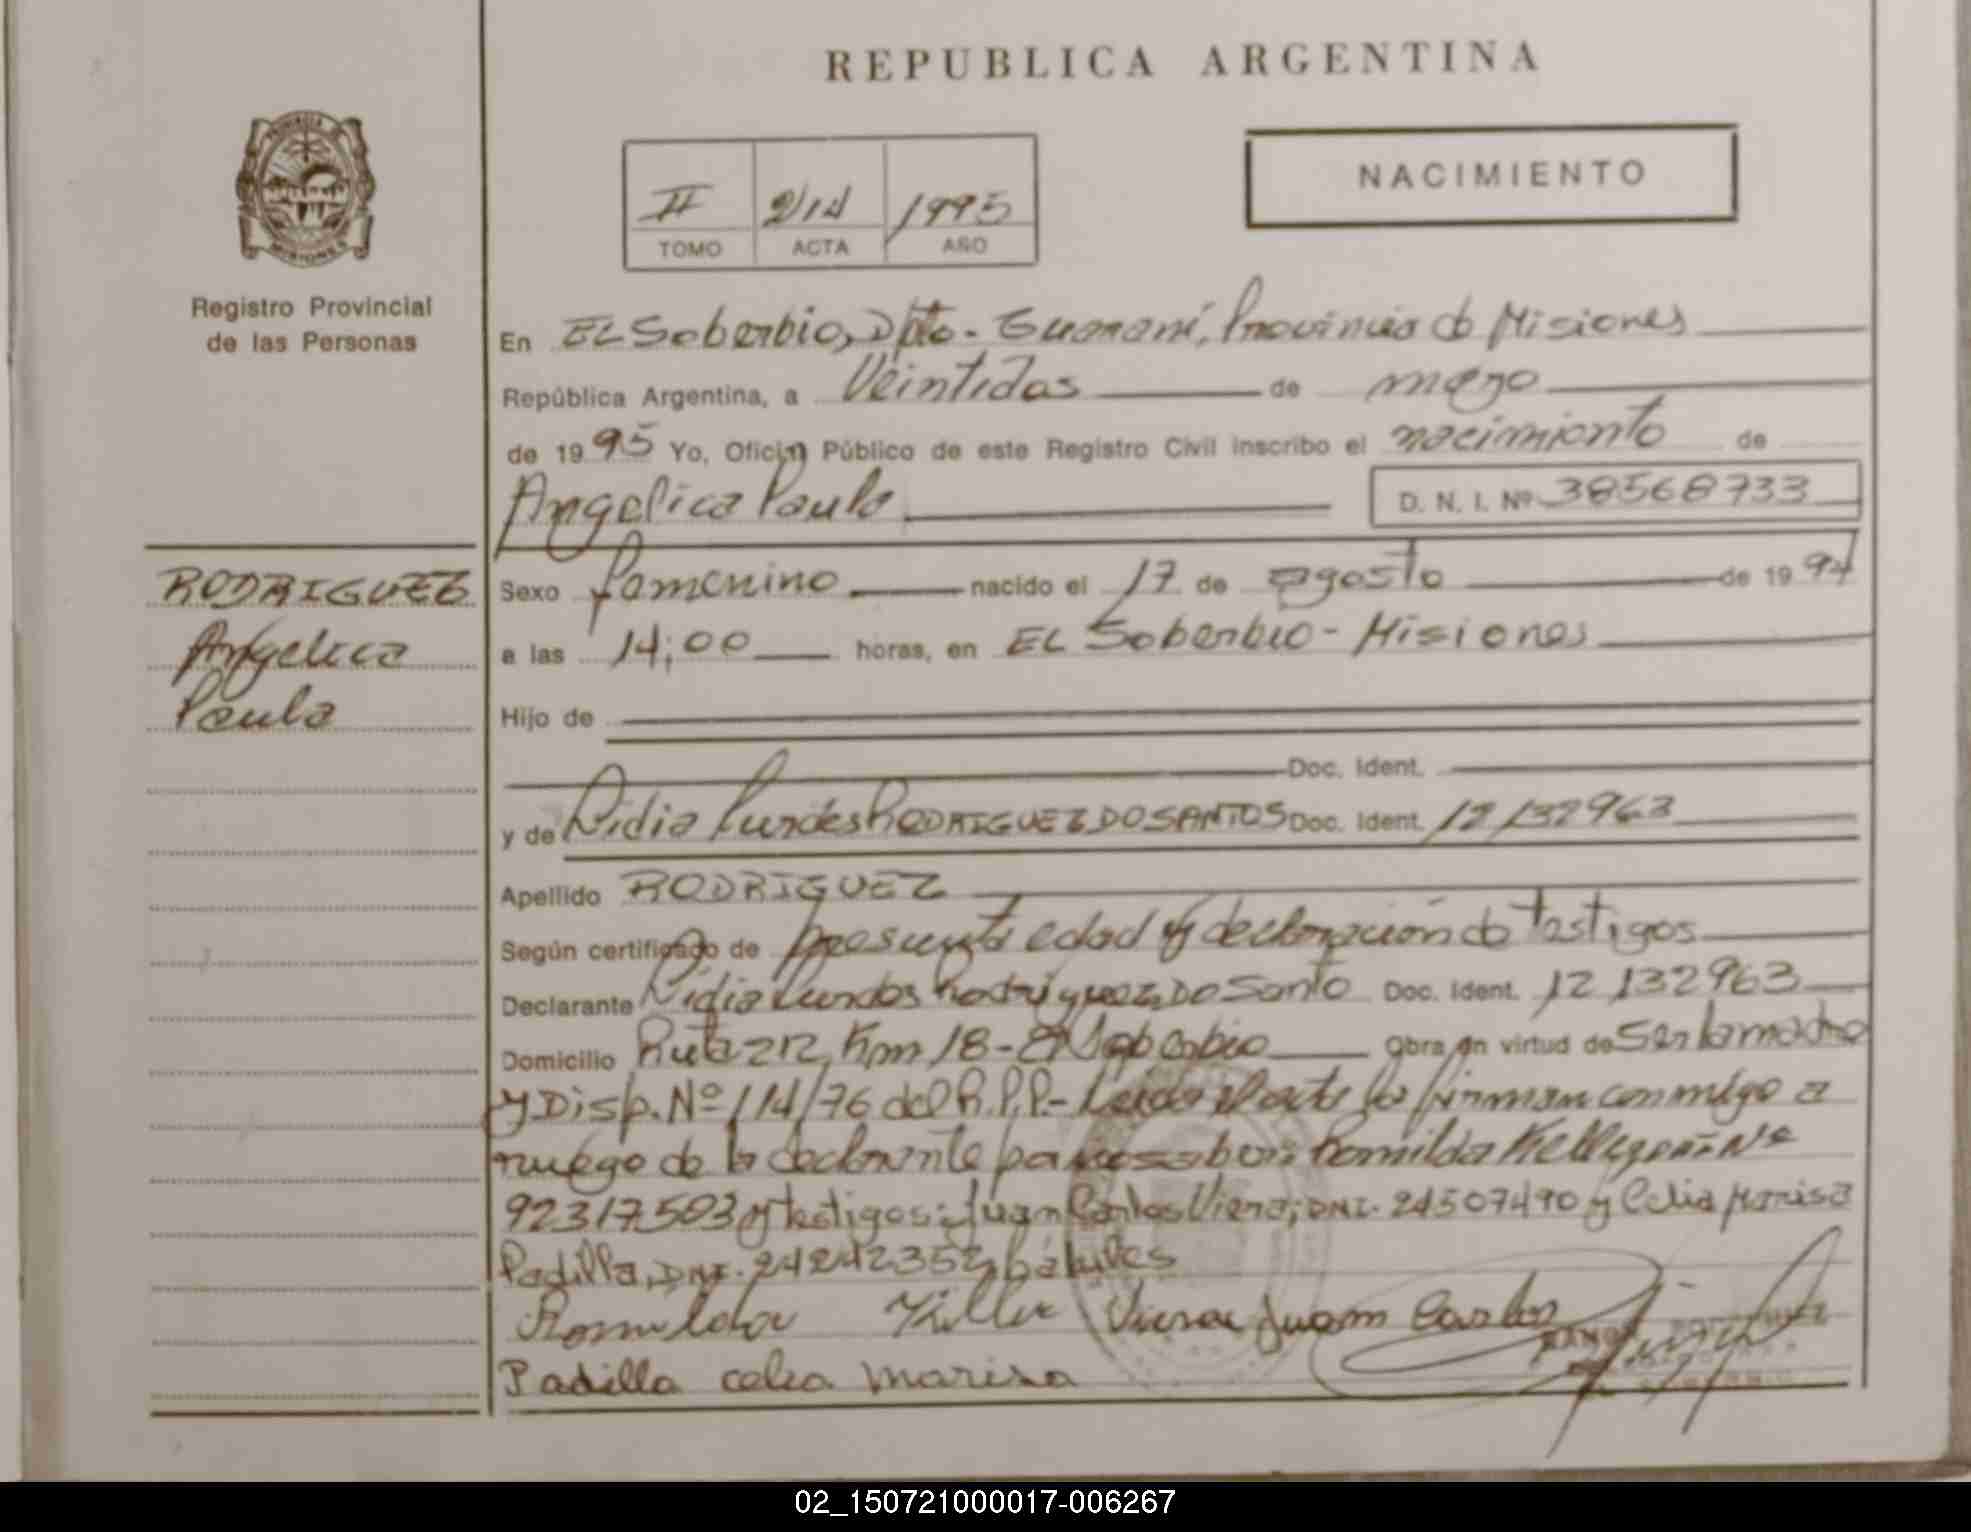 REPUBLICA ARGENTINA
PROVINCIA DE
MISIONES
Registro Provincial
de las Personas
NACIMIENTO
II 214 1995
TOMO ACTA AÑO
En EL Soberbio, Dpto- Guaraní, Provincia de Misiones
República Argentina, a Veintidos de marzo
de 1995 Yo, Oficial Público de este Registro Civil inscribo el nacimiento de
Angelica Paula D. N. I. Nº 38568733
RODRIGUEZ
Angelica
Paula
Sexo femenino nacido el 17 de agosto de 1994
a las 14:00 horas, en EL Soberbio - Misiones
Hijo de
Doc. Ident.
y de Lidia Lurdes RODRIGUEZ DOSANTOS Doc. Ident. 12132963
Apellido RODRIGUEZ
Según certificado de presunta edad y declaración de testigos
Declarante Lidia Lurdes Rodriguez Do Santo Doc. Ident. 12132963
Domicilio Ruta 212 Km 18 - El Soberbio Obra en virtud de Ser la madre
y Disp. Nº 114/76 del R.P.P.- Leida el acta la firman conmigo a
ruego de la declarante por no saber: Romilda Nº
92317503 y testigos: Juan Carlos Viera; DNI. 24507490 y Celia Marisa
Padilla, DNI. 24242352, hábiles
Romilda Viera Juan Carlos
Padilla celia marisa
02_150721000017-006267